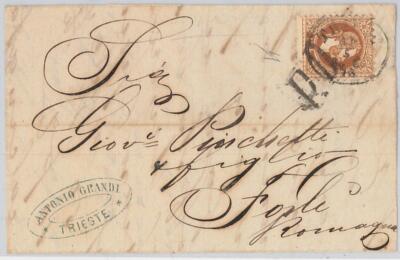 Sig
Giov.
& figlio
Forlì
Romagna
ANTONIO GRANDI
TRIESTE
P.D.